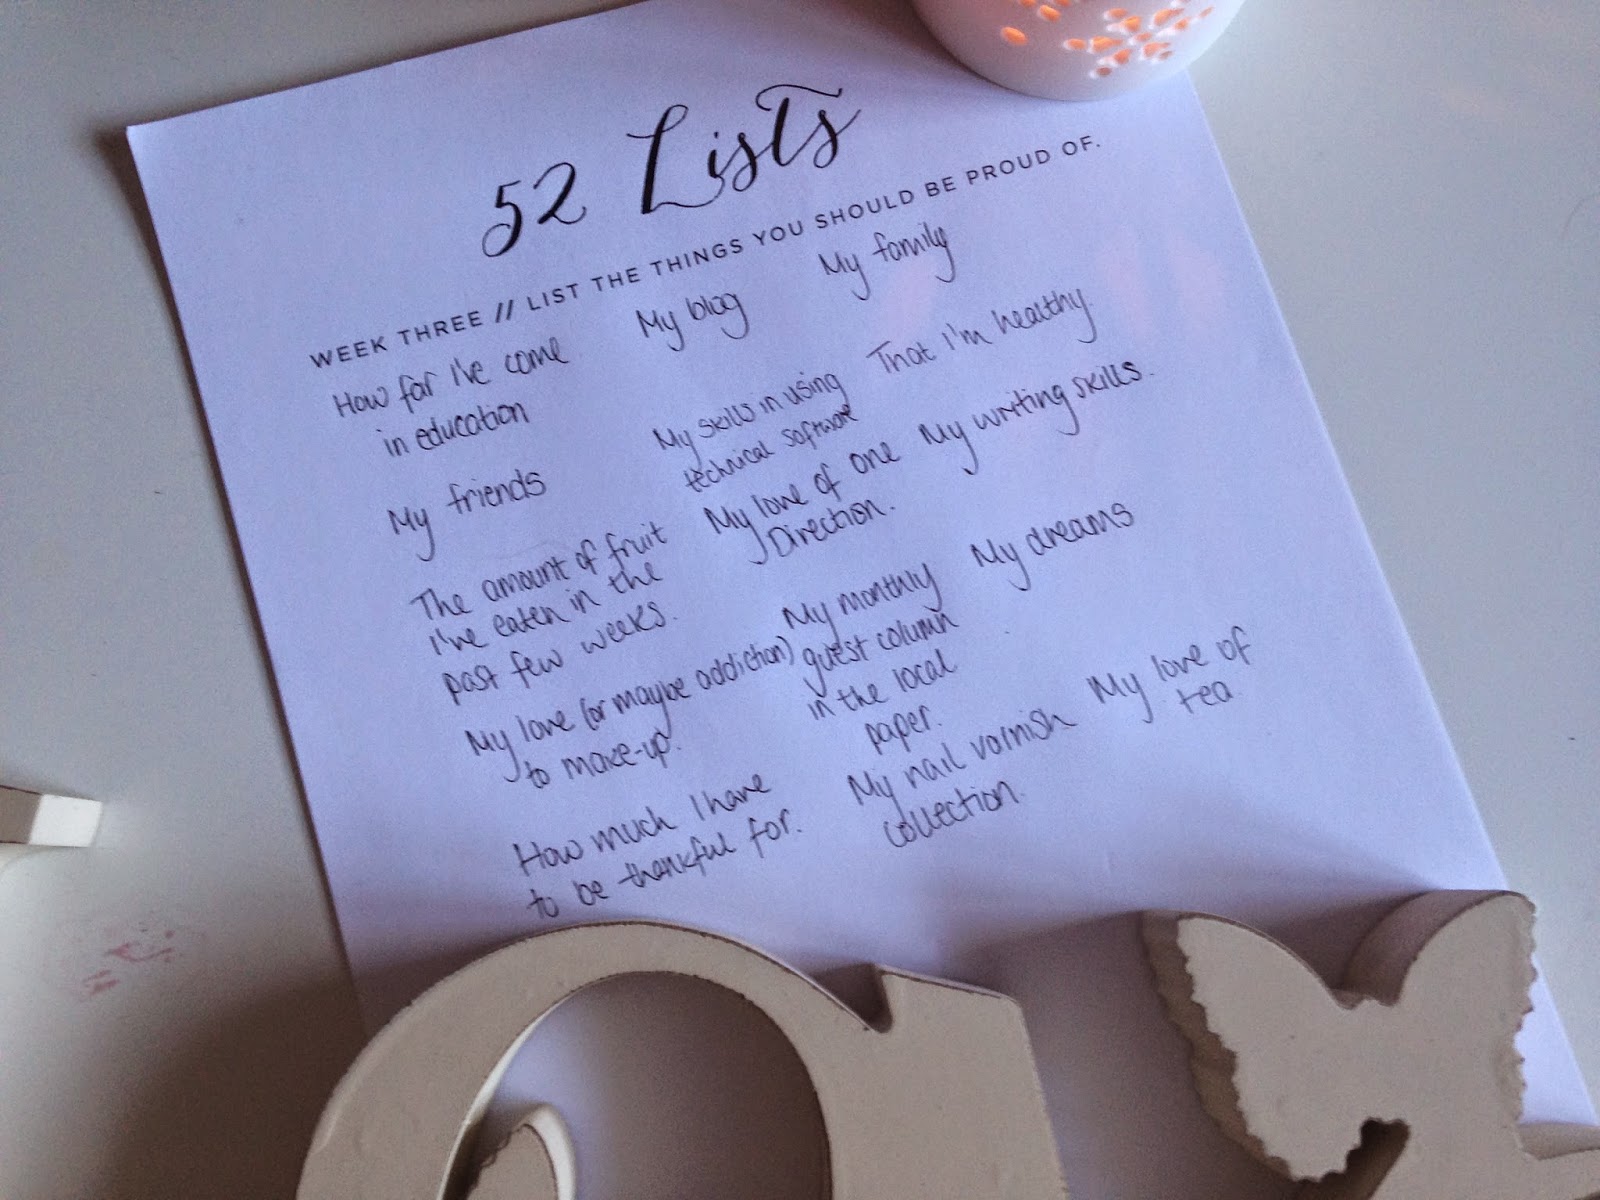 52 Lists
WEEK THREE // LIST THE THINGS YOU SHOULD BE PROUD OF.
How far I've come
in education
My blog
My family
My friends
My skills in using
technical software
That I'm healthy.
The amount of fruit
I've eaten in the
past few weeks.
My love of one
Direction.
My writing skills.
My love (or maybe addiction)
to make-up.
My monthly
guest column
in the local
paper.
My dreams
How much I have
to be thankful for.
My nail varnish
collection.
My love of
tea.